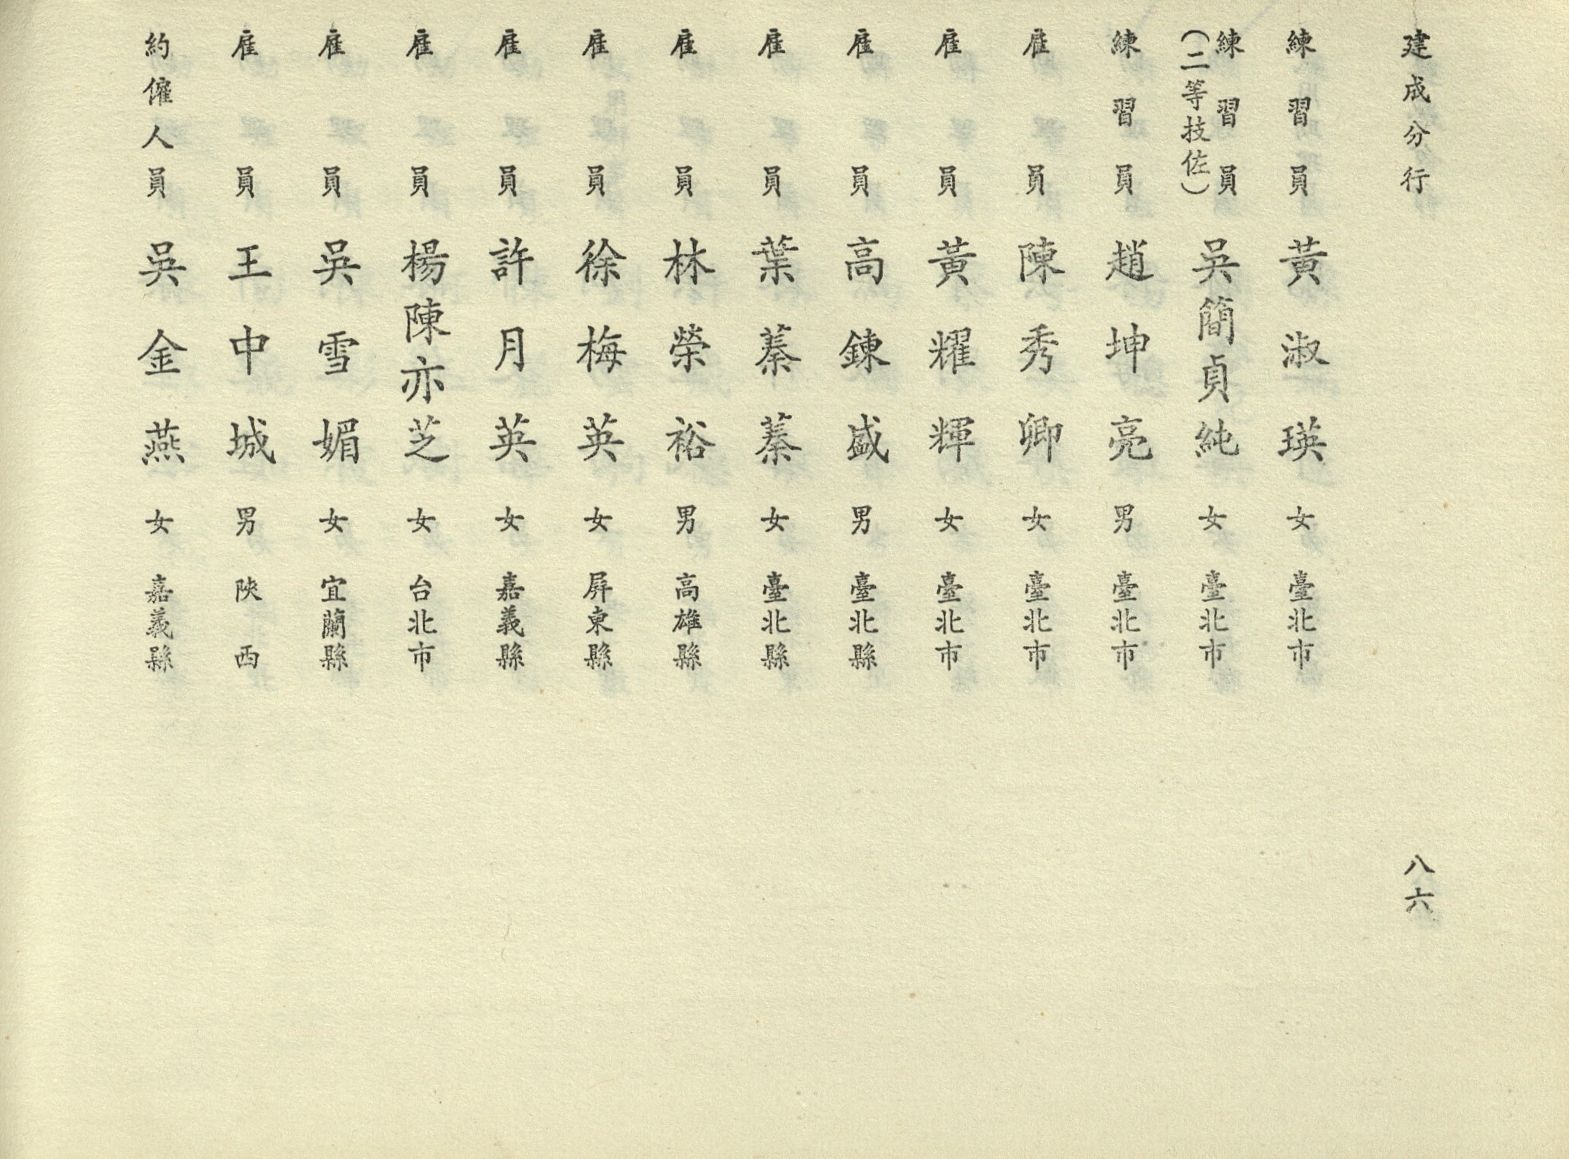 建成分行 八六
練習員 黃淑瑛 女 臺北市
練習員(二等技佐) 吳簡貞純 女 臺北市
練習員 趙坤亮 男 臺北市
雇員 陳秀卿 女 臺北市
雇員 黃耀輝 女 臺北市
雇員 高鍊盛 男 臺北縣
雇員 葉蓁蓁 女 臺北縣
雇員 林榮裕 男 高雄縣
雇員 徐梅英 女 屏東縣
雇員 許月英 女 嘉義縣
雇員 楊陳亦芝 女 台北市
雇員 吳雪媚 女 宜蘭縣
雇員 王中城 男 陝西
約僱人員 吳金燕 女 嘉義縣